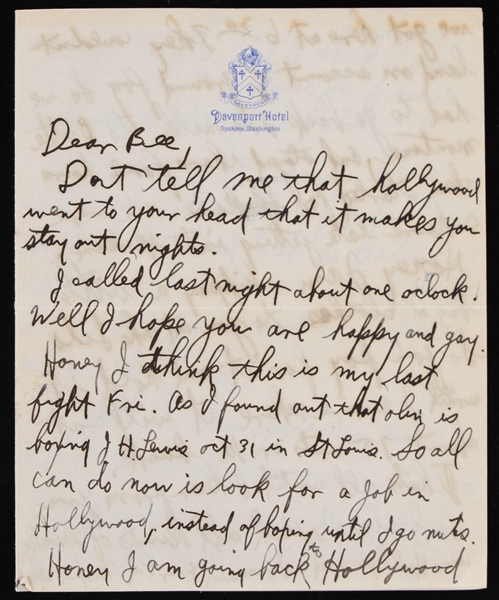 Davenport Hotel
Spokane, Washington
Dear Bee,
Dont tell me that hollywood
went to your head that it makes you
stay out nights.
I called last night about one oclock.
Well I hope you are happy and gay.
Honey I think this is my last
fight Fri. As I found out that olin is
boxing J H. Lewis oct 31 in St Louis. So all
can do now is look for a job in
Hollywood, instead of boxing until I go nuts.
Honey I am going back to Hollywood